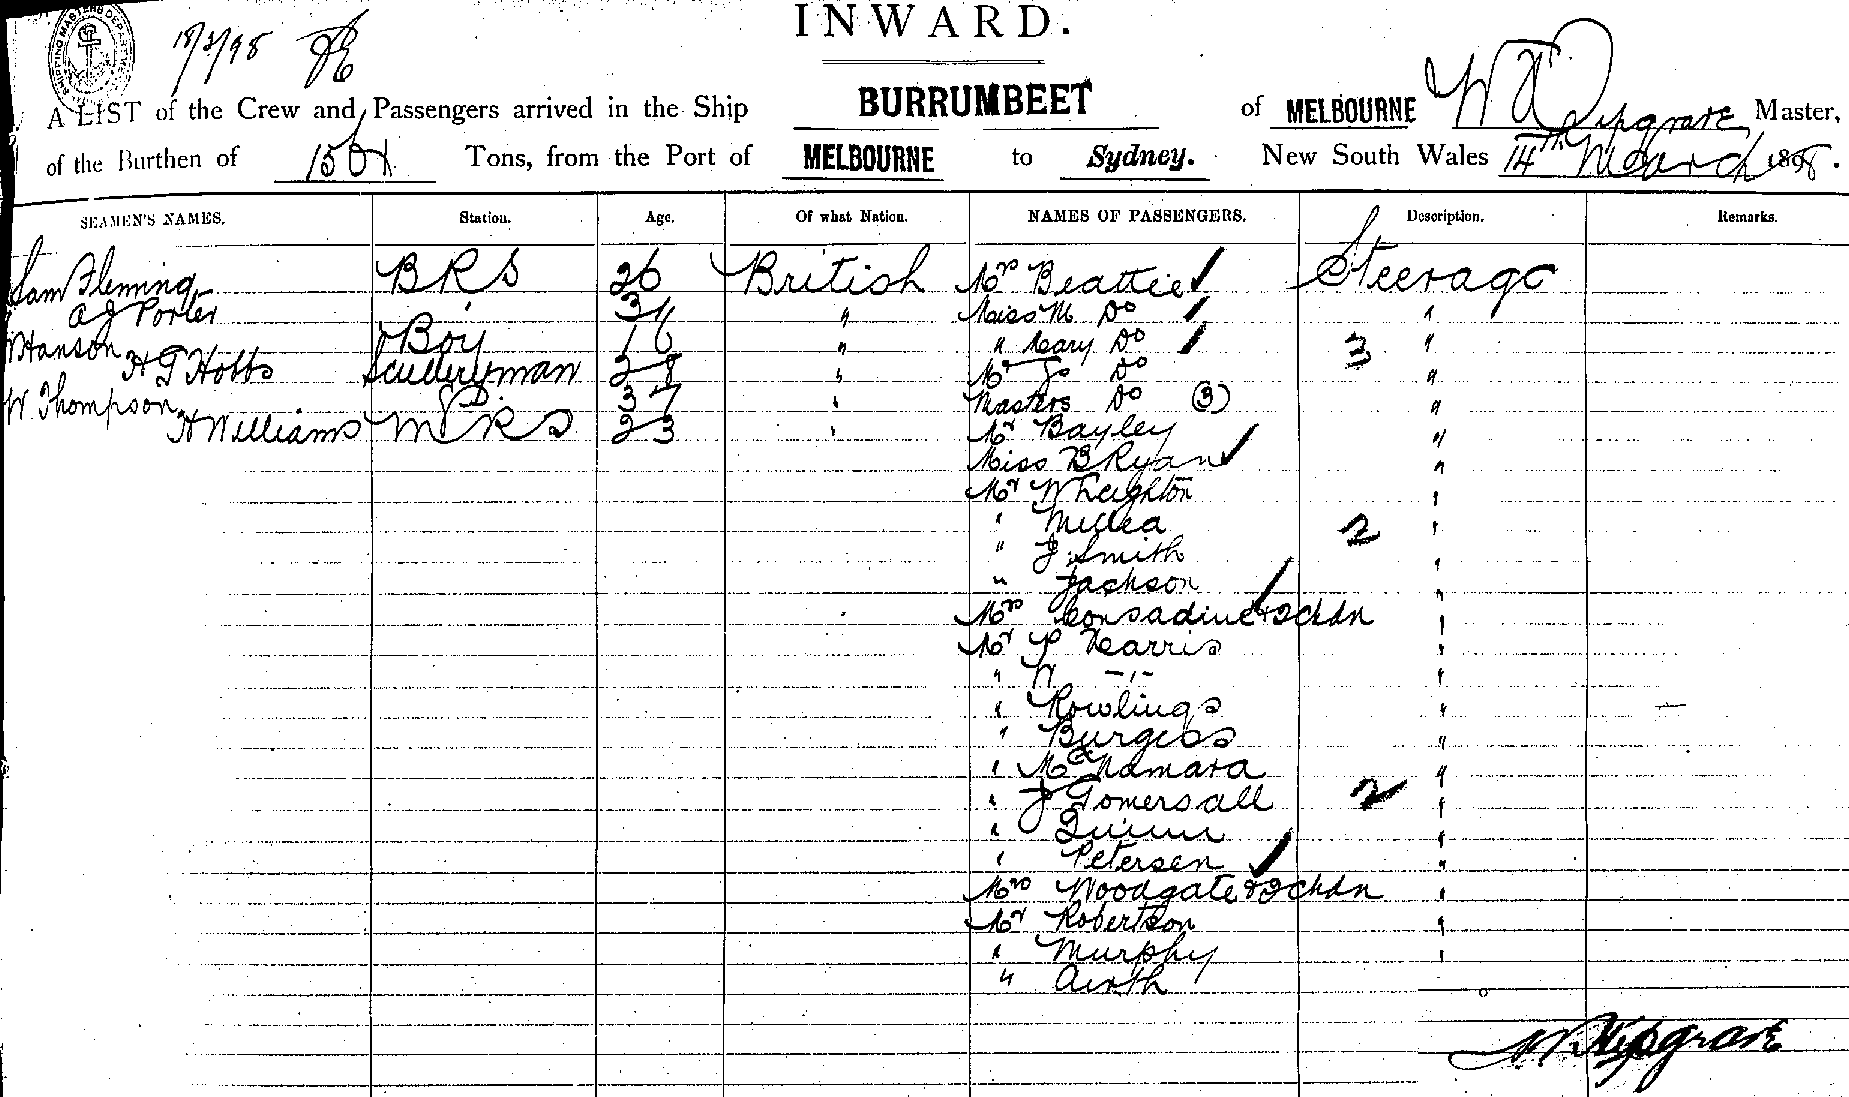 INWARD.
A LIST of the Crew and Passengers arrived in the Ship BURRUMBEET of MELBOURNE Master,
of the Burthen of Tons, from the Port of MELBOURNE to Sydney. New South Wales 14th March 1898.
SEAMEN'S NAMES. Station. Age. Of what Nation. NAMES OF PASSENGERS. Description. Remarks.
Sam Fleming BRS 26 British Mrs Beattie ✓ Steerage
A J Porter " Miss M Do ✓ "
Hanson Boy 16 " " Mary Do ✓ 3 "
H G Hobbs Sculleryman 28 " Mr Do "
W. Thompson 37 " Masters Do (3) "
H Williams 23 " Mr Bayley "
Miss B Ryan ✓ "
Mr W Leighton "
" 2 "
" J Smith "
" Jackson "
Mrs Consadine & 2 Chdn ✓ "
Mr Harris "
" W -"- "
" Rowlings "
" Burgess "
" McNamara "
" J Tomersall 2 "
" Quinn "
" Petersen ✓ "
Mrs Woodgate & 2 Chdn "
Mr Robertson "
" Murphy "
" Airth